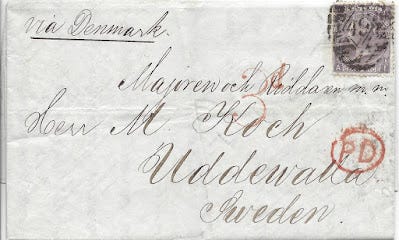 via Denmark.
Majoren och Riddaren m.m.
Herr M. Koch
Uddewalla
Sweden.
PD